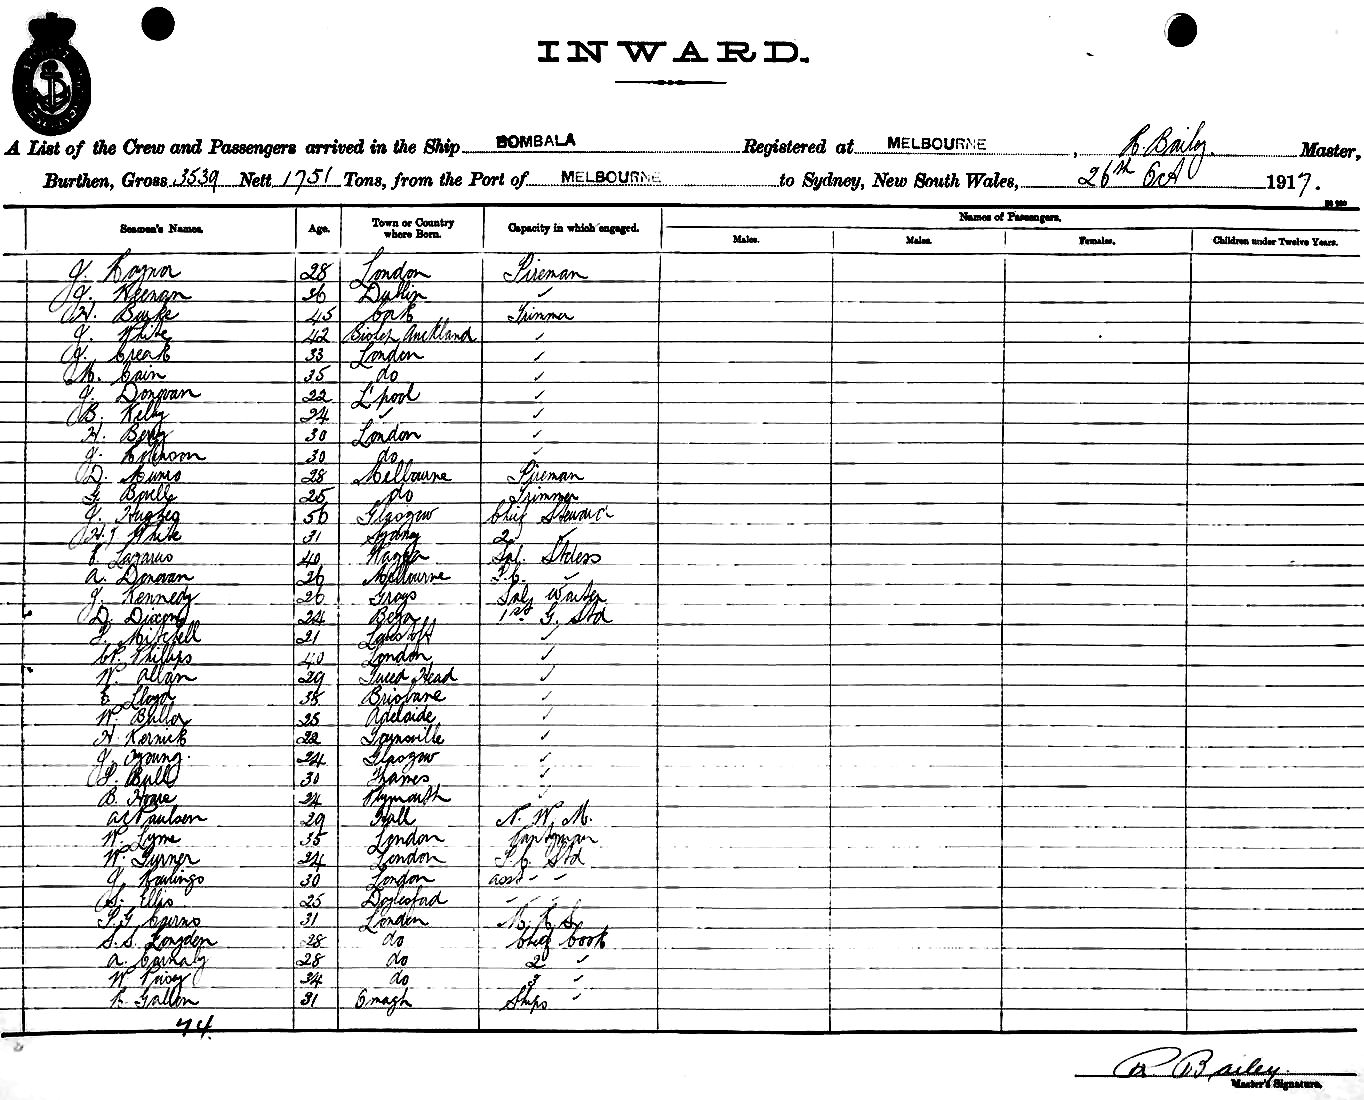 INWARD.
A List of the Crew and Passengers arrived in the Ship BOMBALA Registered at MELBOURNE, R. Bailey. Master,
Burthen, Gross 3539 Nett 1751 Tons, from the Port of MELBOURNE to Sydney, New South Wales, 26th Oct 1917.
Names of Passengers.
Seamen's Names. Age. Town or Country where Born. Capacity in which engaged. Males. Males. Females. Children under Twelve Years.
J. 28 London Fireman
J. Keenan 36 Dublin "
Burke 45 Cork Trimmer
J. White 42 Auckland "
J. Creak 33 London "
M. Cain 35 do "
J. Donovan 22 L'pool "
B. Kelly 24 " "
H. Berry 30 London "
J. Robinson 30 do "
D. Munro 28 Melbourne Fireman
G. 25 do Trimmer
J. Hughes 56 Glasgow Chief Steward
H. J White 31 Sydney 2 "
Lazarus 40 Wagga Stdess
A. Donovan 26 Melbourne "
J. Kennedy 26 Grays Waiter
D. Dixon 24 Bega 1st G. Std
Mitchell 21 Lowestoft "
Phillips 40 London "
W. Allan 29 Tweed Head "
E Lloyd 38 Brisbane "
W. 25 Adelaide "
H. Kernick 22 "
J. Young. 24 Glasgow "
Bull 30 Thames "
B. Hoare 24 Plymouth "
Paulsen 29 Hull N. W. M.
W. Lyme 35 London Pantryman
W. Turner 24 London Std
J. Rawlings 30 London asst " "
S. Ellis 25 Daylesford " " "
Cairns 31 London
S. S. Longden 28 do Chief Cook
A. 28 do 2 "
W 34 do 3 "
Gallon 31 Omagh Ships "
74.
R Bailey.
Master's Signature.